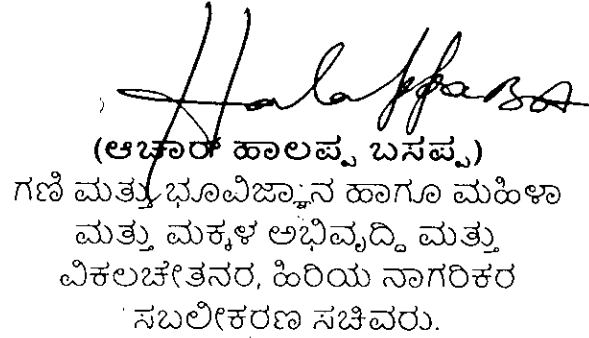 Halappa BA
(ಆಚಾರ್ ಹಾಲಪ್ಪ ಬಸಪ್ಪ)
ಗಣಿ ಮತ್ತು ಭೂವಿಜ್ಞಾನ ಹಾಗೂ ಮಹಿಳಾ
ಮತ್ತು ಮಕ್ಕಳ ಅಭಿವೃದ್ಧಿ ಮತ್ತು
ವಿಕಲಚೇತನರ, ಹಿರಿಯ ನಾಗರಿಕರ
ಸಬಲೀಕರಣ ಸಚಿವರು.